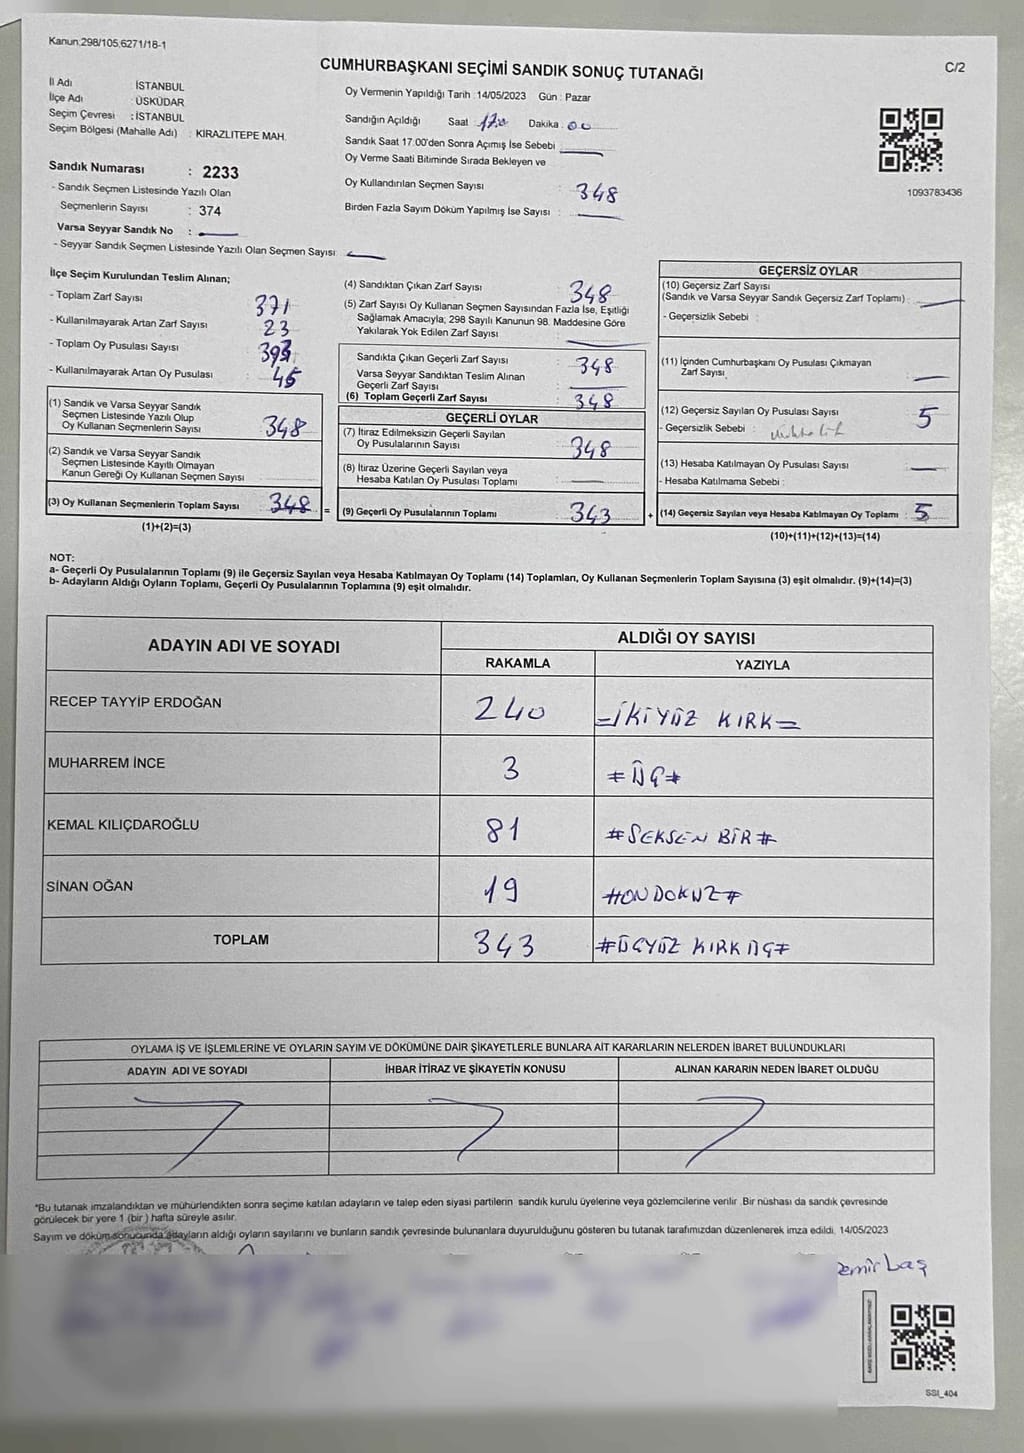 Kanun:298/105,6271/18-1
CUMHURBAŞKANI SEÇİMİ SANDIK SONUÇ TUTANAĞI
C/2
İl Adı : İSTANBUL
İlçe Adı : ÜSKÜDAR
Seçim Çevresi : İSTANBUL
Seçim Bölgesi (Mahalle Adı) : KİRAZLITEPE MAH.
Sandık Numarası : 2233
- Sandık Seçmen Listesinde Yazılı Olan
Seçmenlerin Sayısı : 374
Varsa Seyyar Sandık No :
- Seyyar Sandık Seçmen Listesinde Yazılı Olan Seçmen Sayısı
Oy Vermenin Yapıldığı Tarih : 14/05/2023 Gün : Pazar
Sandığın Açıldığı Saat : Dakika : 00
Sandık Saat 17.00'den Sonra Açımış İse Sebebi
Oy Verme Saati Bitiminde Sırada Bekleyen ve
Oy Kullandırılan Seçmen Sayısı : 348
Birden Fazla Sayım Döküm Yapılmış İse Sayısı :
1093783436
İlçe Seçim Kurulundan Teslim Alınan;
- Toplam Zarf Sayısı : 371
- Kullanılmayarak Artan Zarf Sayısı : 23
- Toplam Oy Pusulası Sayısı : 393
- Kullanılmayarak Artan Oy Pusulası : 45
(1) Sandık ve Varsa Seyyar Sandık
Seçmen Listesinde Yazılı Olup
Oy Kullanan Seçmenlerin Sayısı : 348
(2) Sandık ve Varsa Seyyar Sandık
Seçmen Listesinde Kayıtlı Olmayan
Kanun Gereği Oy Kullanan Seçmen Sayısı
(3) Oy Kullanan Seçmenlerin Toplam Sayısı : 348 =
(1)+(2)=(3)
(4) Sandıktan Çıkan Zarf Sayısı : 348
(5) Zarf Sayısı Oy Kullanan Seçmen Sayısından Fazla İse, Eşitliği
Sağlamak Amacıyla; 298 Sayılı Kanunun 98. Maddesine Göre
Yakılarak Yok Edilen Zarf Sayısı :
Sandıkta Çıkan Geçerli Zarf Sayısı : 348
Varsa Seyyar Sandıktan Teslim Alınan
Geçerli Zarf Sayısı :
(6) Toplam Geçerli Zarf Sayısı : 348
GEÇERLİ OYLAR
(7) İtiraz Edilmeksizin Geçerli Sayılan
Oy Pusulalarının Sayısı : 348
(8) İtiraz Üzerine Geçerli Sayılan veya
Hesaba Katılan Oy Pusulası Toplamı :
(9) Geçerli Oy Pusulalarının Toplamı : 343 +
GEÇERSİZ OYLAR
(10) Geçersiz Zarf Sayısı
(Sandık ve Varsa Seyyar Sandık Geçersiz Zarf Toplamı) :
- Geçersizlik Sebebi :
(11) İçinden Cumhurbaşkanı Oy Pusulası Çıkmayan
Zarf Sayısı :
(12) Geçersiz Sayılan Oy Pusulası Sayısı : 5
- Geçersizlik Sebebi :
(13) Hesaba Katılmayan Oy Pusulası Sayısı :
- Hesaba Katılmama Sebebi :
(14) Geçersiz Sayılan veya Hesaba Katılmayan Oy Toplamı : 5
(10)+(11)+(12)+(13)=(14)
NOT:
a- Geçerli Oy Pusulalarının Toplamı (9) ile Geçersiz Sayılan veya Hesaba Katılmayan Oy Toplamı (14) Toplamları, Oy Kullanan Seçmenlerin Toplam Sayısına (3) eşit olmalıdır. (9)+(14)=(3)
b- Adayların Aldığı Oyların Toplamı, Geçerli Oy Pusulalarının Toplamına (9) eşit olmalıdır.
ADAYIN ADI VE SOYADI
ALDIĞI OY SAYISI
RAKAMLA YAZIYLA
RECEP TAYYİP ERDOĞAN 240 =İKİYÜZ KIRK=
MUHARREM İNCE 3 #ÜÇ#
KEMAL KILIÇDAROĞLU 81 #SEKSEN BİR#
SİNAN OĞAN 19 #ONDOKUZ#
TOPLAM 343 #ÜÇYÜZ KIRK ÜÇ#
OYLAMA İŞ VE İŞLEMLERİNE VE OYLARIN SAYIM VE DÖKÜMÜNE DAİR ŞİKAYETLERLE BUNLARA AİT KARARLARIN NELERDEN İBARET BULUNDUKLARI
ADAYIN ADI VE SOYADI İHBAR İTİRAZ VE ŞİKAYETİN KONUSU ALINAN KARARIN NEDEN İBARET OLDUĞU
*Bu tutanak imzalandıktan ve mühürlendikten sonra seçime katılan adayların ve talep eden siyasi partilerin sandık kurulu üyelerine veya gözlemcilerine verilir. Bir nüshası da sandık çevresinde
görülecek bir yere 1 (bir) hafta süreyle asılır.
Sayım ve döküm sonucunda adayların aldığı oyların sayılarını ve bunların sandık çevresinde bulunanlara duyurulduğunu gösteren bu tutanak tarafımızdan düzenlenerek imza edildi. 14/05/2023
SSI_404